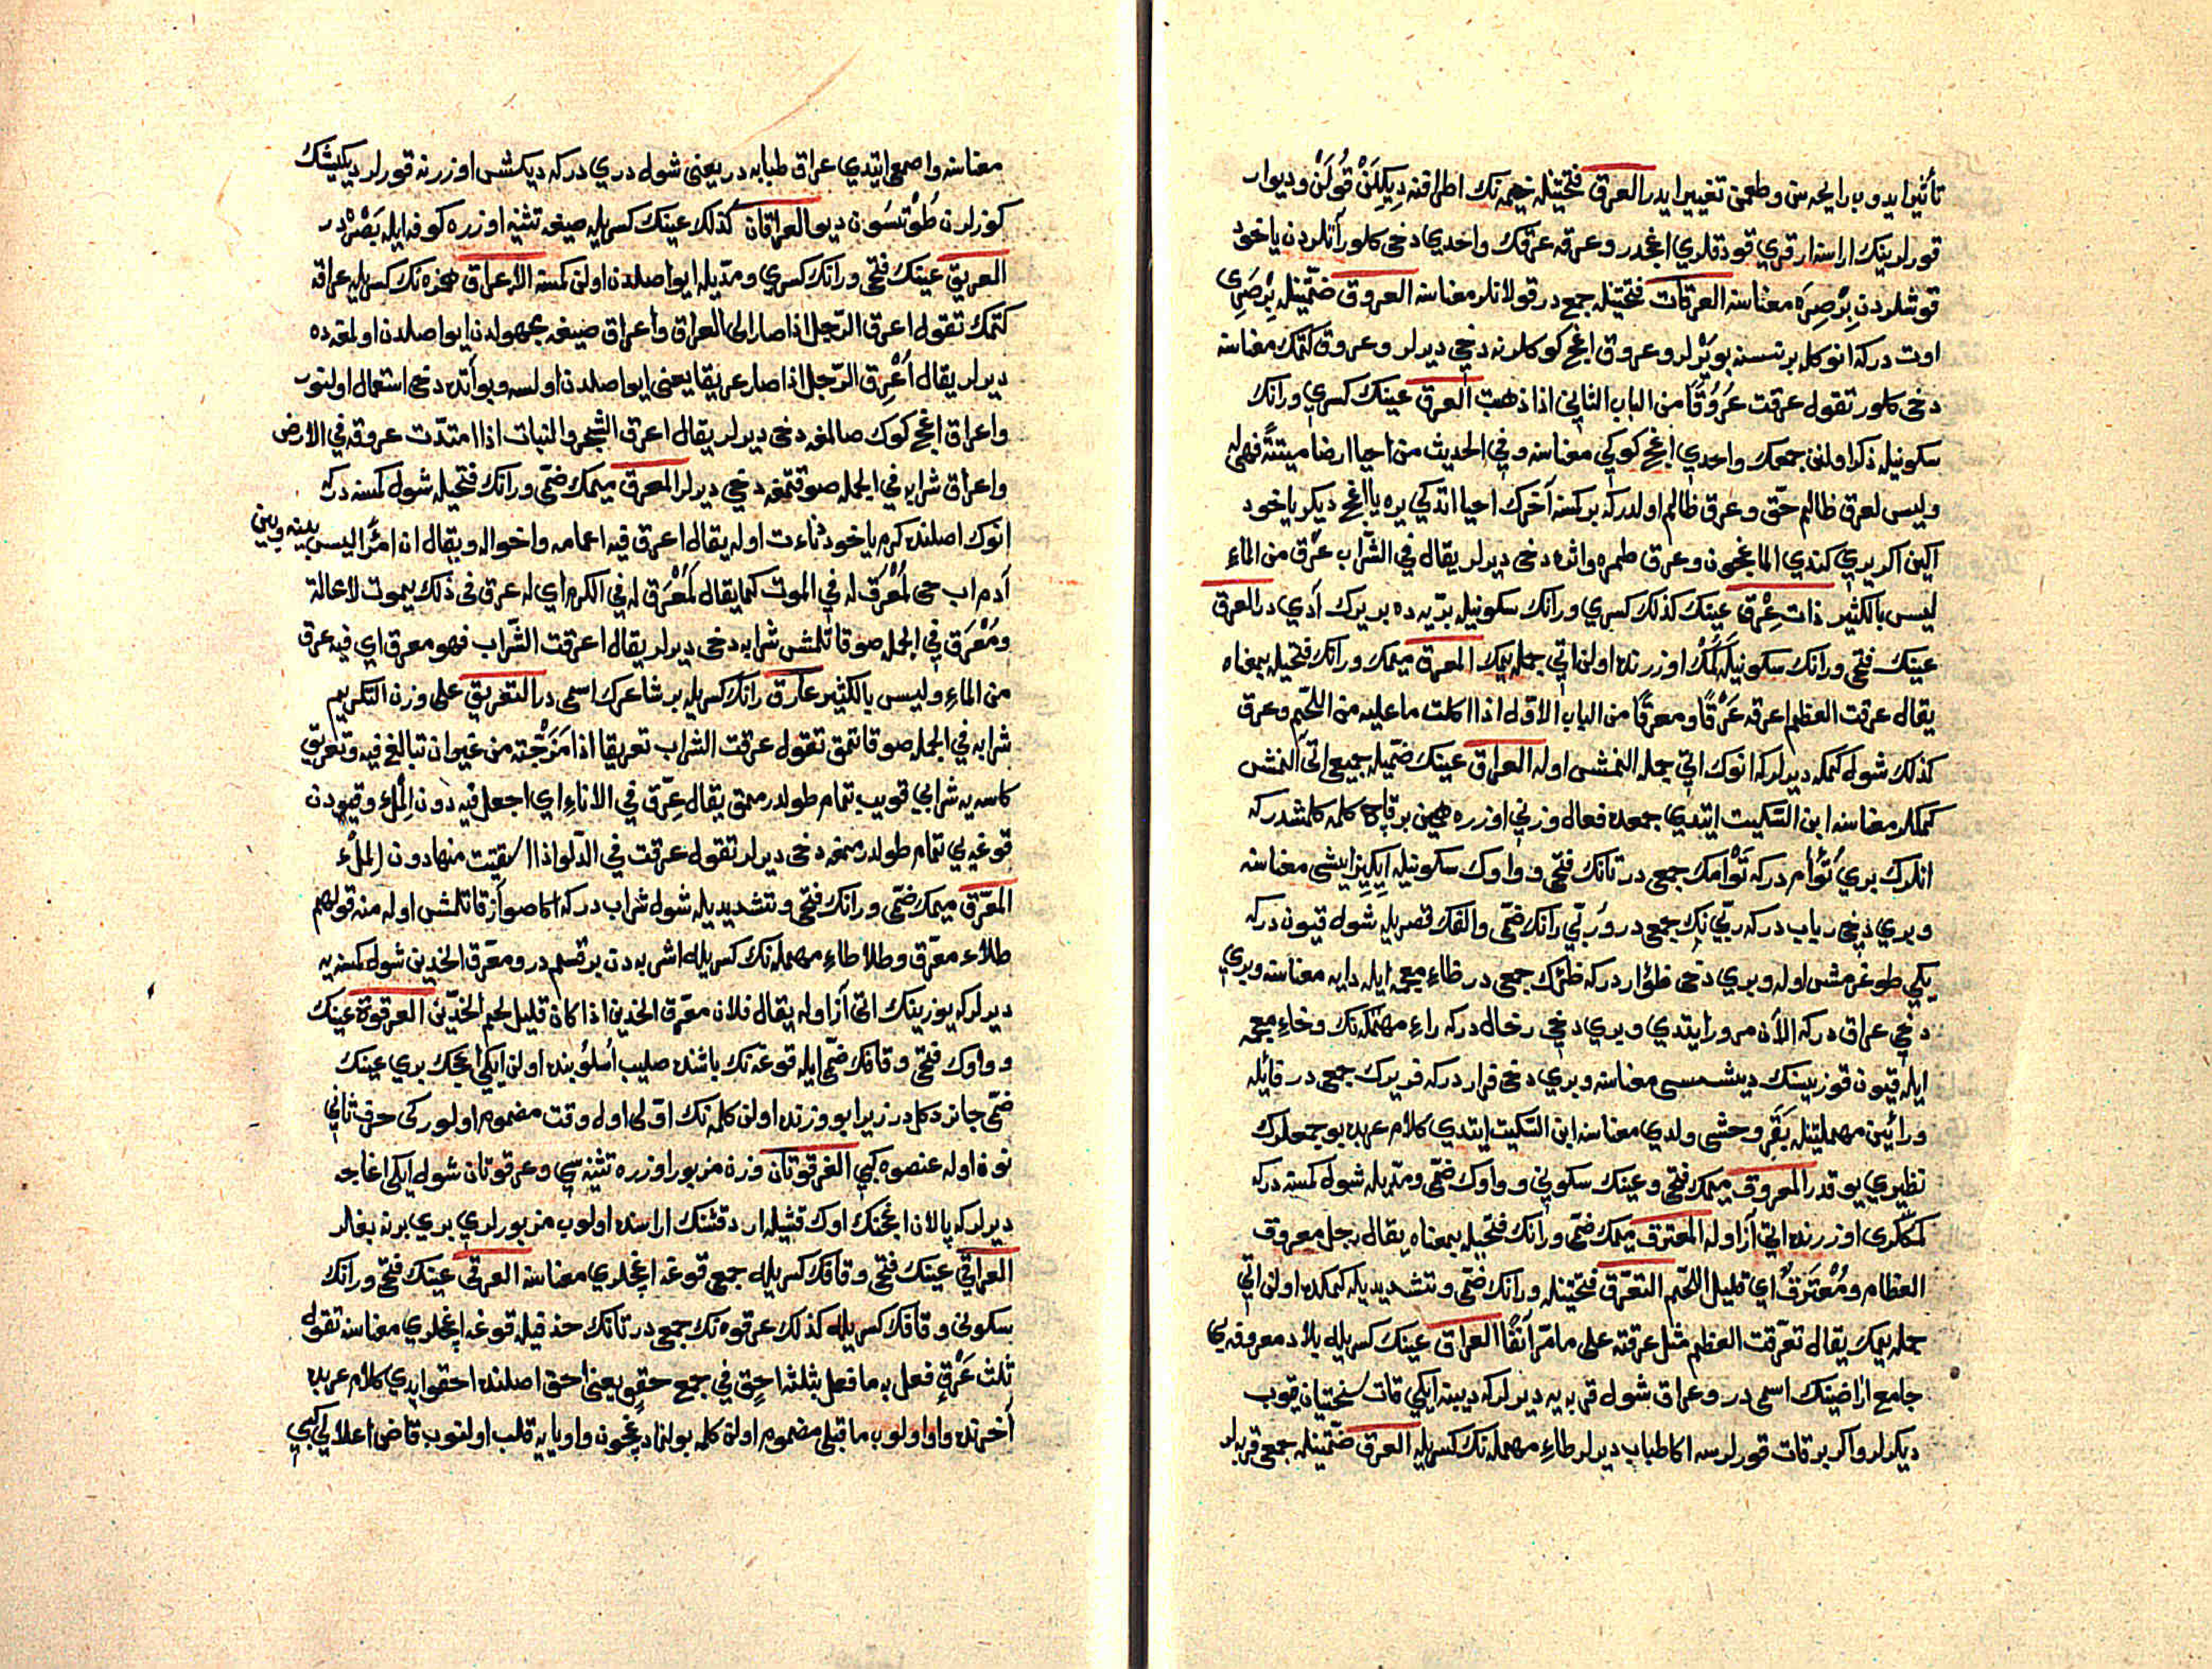 تأثير ايدوب رايحه سن وطعمن تغيير ايدر العرق فتحتيله خيمه نك اطرافنه ديكيلن قولن وديوار
قورلرينك اراسنه ارقري قودقلري اغجدر وعرقه عرقك واحدي دخي كلور آنلردن ياخود
قوشلردن بر صره معناسنه العرقات فتحتيله جمعدر قولانلر معناسنه العروق ضمتيله بر صري
اوت دركه انوكله بر نسنه بويرلر وعروق اغج كوكلرنه دخي ديرلر وعروق كتمك معناسنه
دخي كلور تقول عرقت عروقا من الباب الثاني اذا ذهبت العرق عينك كسري ورانك
سكونيله ذكر اولنن جمعك واحدي اغج كوكي معناسنه وفي الحديث من احيا ارضا ميتة فهي له
وليس لعرق ظالم حق وعرق ظالم اولدركه بر كمسنه آخرك احيا اتدكي يره يا اغج ديكر ياخود
اكين اكر يري كندي المغيچون وعرق طمره واثره دخي ديرلر يقال في الشراب عرق من الماء
ليس بالكثير ذات عرق عينك كذلك كسري ورانك سكونيله بريه ده بر يرك آدي در العرق
عينك فتحي ورانك سكونيله كمك اوزرنده اولن اتي جمله يمك المعرق ميمك ورانك فتحيله بمعناه
يقال عرقت العظم اعرقه عرقا ومعرقا من الباب الاول اذا اكلت ما عليه من اللحم وعرق
كذلك شول كمكه ديرلركه انوك اتي جمله النمش اوله العراق عينك ضميله جمعي اتي النمش
كمكلر معناسنه ابن السكيت ايتدي جمعده فعال وزني اوزره همين بر قاچ كلمه كلمشدركه
انلرك بري تؤام دركه توأمك جمعي در تانك فتحي وواوك سكونيله ايكيز ايشي معناسنه
وبري دخي رباب دركه ربي نك جمعي در وربي رانك ضمي والفك قصريله شول قيون دركه
يكي طوغرمش اوله وبري دخي ظؤار دركه ظئرك جمعي در ظاء معجمه ايله دايه معناسنه وبري
دخي عراق دركه الآن مرور ايتدي وبري دخي رخال دركه راء مهمله نك وخاء معجمه
ايله قيون قوزيسنك ديشيسي معناسنه وبري دخي فرار دركه فريرك جمعي در فائله
ورائين مهملتيله بقر وحشي ولدي معناسنه ابن السكيت ايتدي كلام عربده بو جمعلرك
نظيري يوقدر المعروق ميمك فتحي وعينك سكوني وواوك ضمي ومديله شول كمسنه دركه
كمكلري اوزرنده اتي آز اوله المعترق ميمك ضمي ورانك فتحيله بمعناه يقال رجل معروق
العظام ومعترق اي قليل اللحم التعرق فتحتيله ورانك ضمي وتشديديله كمكده اولن اتي
جمله يمك يقال تعرقت العظم مثل عرقته على ما مر آنفا العراق عينك كسريله بلاد معروفه يي
جامع اراضينك اسمي در وعراق شول قربه يه ديرلركه ديبنه ايكي قات سختيان قيوب
ديكرلر واكر بر قات قورلرسه اكا طباب ديرلر طاء مهمله نك كسريله العرق ضمتيله جمعي قربه لر
معناسنه واصمعي ايتدي عراق طبابه در يعني شول دري دركه ديكش اوزرنه قورلر ديكيشك
كوزلرن طوتسون ديو العراقان كذلك عينك كسريله صيغه تثنيه اوزره كوفه ايله بصره در
العريق عينك فتحي ورانك كسري ومديله ايو اصلدن اولن كمسنه الاعراق همزه نك كسريله عراقه
كتمك تقول اعرق الرجل اذا صار الى العراق واعراق صيغه مجهولدن ايو اصلدن اولمغه ده
ديرلر يقال أعرق الرجل اذا صار عريقا يعني ايو اصلدن اولسه وبو آنده دخي استعمال اولنور
واعراق اغج كوك صالمغه دخي ديرلر يقال اعرق الشجر والنبات اذا امتدت عروقه في الارض
واعراق شرابه في الجمله صو قتمغه دخي ديرلر المعرق ميمك ضمي ورانك فتحيله شول كمسنه دركه
انوك اصلنده كرم ياخود دناءت اوله يقال اعرق فيه اعمامه واخواله ويقال ان امرأ ليس بينه وبين
آدم اب حي لمعرق له في الموت كما يقال لمعرق له في الكرم اي له عرق في ذلك يموت لا محالة
ومعرق في الجمله صو قاتلمش شرابه دخي ديرلر يقال اعرقت الشراب فهو معرق اي فيه عرق
من الماء وليس بالكثير عارق رانك كسريله بر شاعرك اسمي در التعريق على وزن التكريم
شرابه في الجمله صو قاتمق تقول عرقت الشراب تعريقا اذا مزجته من غير ان تبالغ فيه وتعريق
كاسه يه شرابي قويب تمام طولدرممق يقال عرق في الاناء اي اجعل فيه دون الملء وقيودن
قوغه يي تمام طولدرممغه دخي ديرلر تقول عرقت في الدلو اذا استقيت منها دون الملء
المعرق ميمك ضمي ورانك فتحي وتشديديله شول شراب دركه اكا صو آز قاتلمش اوله منه قولهم
طلاء معرق وطلا طاء مهمله نك كسريله اشربه دن بر قسم در ومعرق الخدين شول كمسنه يه
ديرلركه يوزينك اتي آز اوله يقال فلان معرق الخدين اذا كان قليل لحم الخدين العرقوة عينك
وواوك فتحي وقافك ضمي ايله قوغه نك باشنده صليب اسلوبنده اولن ايكي اغجك بري عينك
ضمي جائز دكلدر زيرا بو وزنده اولن كلمه نك اولى اول وقت مضموم اولور كي حرف ثاني
نون اوله عنصوه كبي العرقوتان وزن مزبور اوزره تثنيه سي وعرقوتان شول ايكي اغاجه
ديرلركه پالان اغجنك اوك قشيله ارد قشنك اراسنده اولوب مزبورلري بري برنه بغلر
العراقي عينك فتحي وقافك كسريله جمعي قوغه اغجلري معناسنه العرقي عينك فتحي ورانك
سكوني وقافك كسريله كذلك عرقوه نك جمعي در تانك حذفيله قوغه اغجلري معناسنه تقول
ثلث عرق فعل به ما فعل بثلثه احق في جمع حقو يعني احق اصلنده احقو ايدي كلام عربده
آخرنده واو اولوب ما قبلي مضموم اولن كلمه بولنمادوغيچون واو يايه قلب اولنوب قاض اعلالي كبي